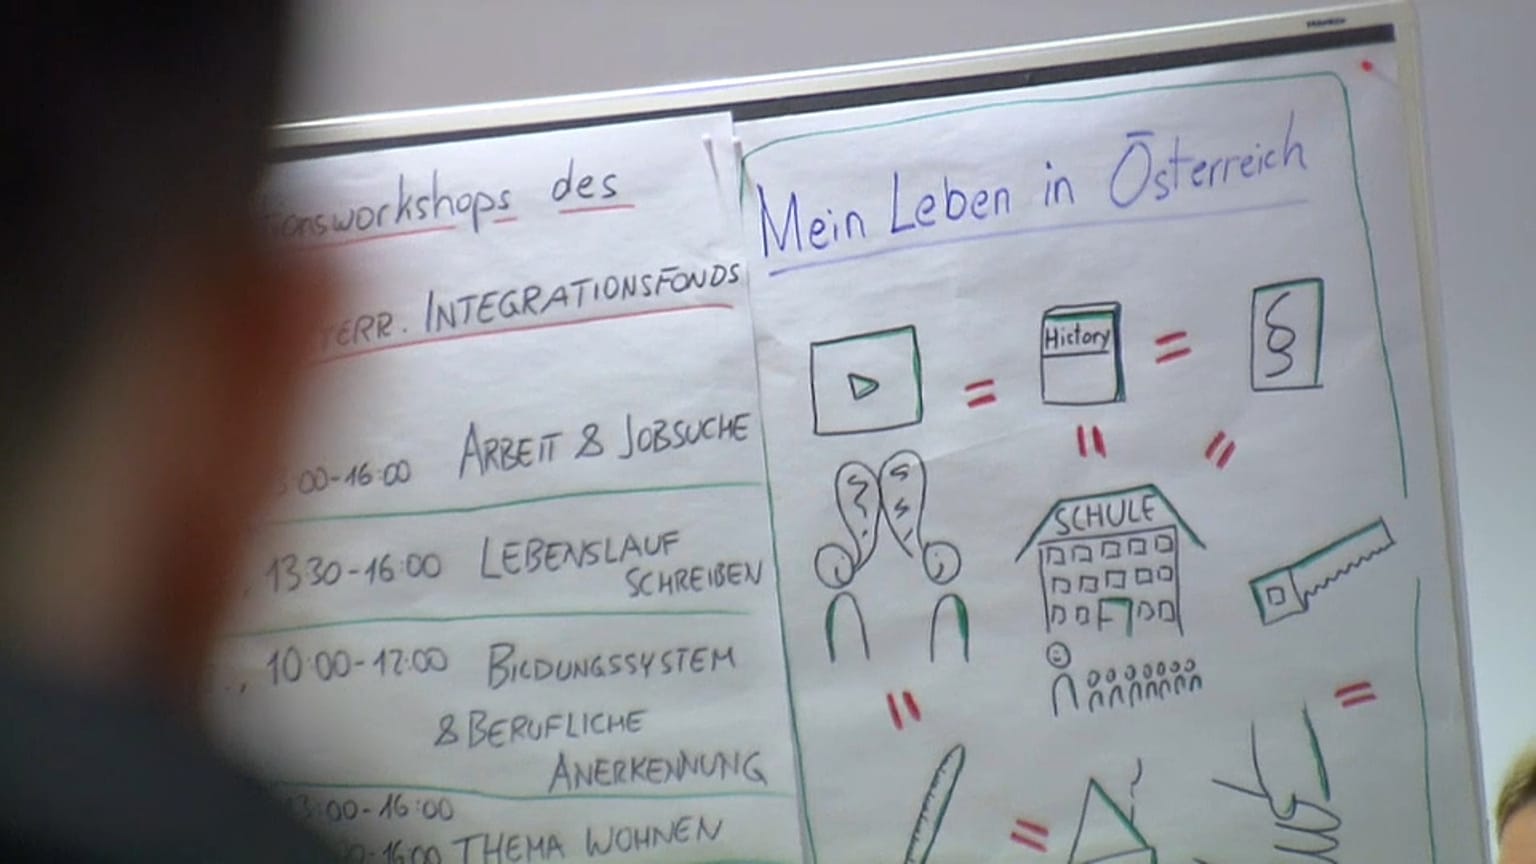 des
INTEGRATIONSFONDS
00-16:00 ARBEIT & JOBSUCHE
13:30-16:00 LEBENSLAUF
SCHREIBEN
10:00-12:00 BILDUNGSSYSTEM
& BERUFLICHE
ANERKENNUNG
13:00-16:00
16:00 THEMA WOHNEN
Mein Leben in Österreich
= Hictory = §
= =
SCHULE
= =
=